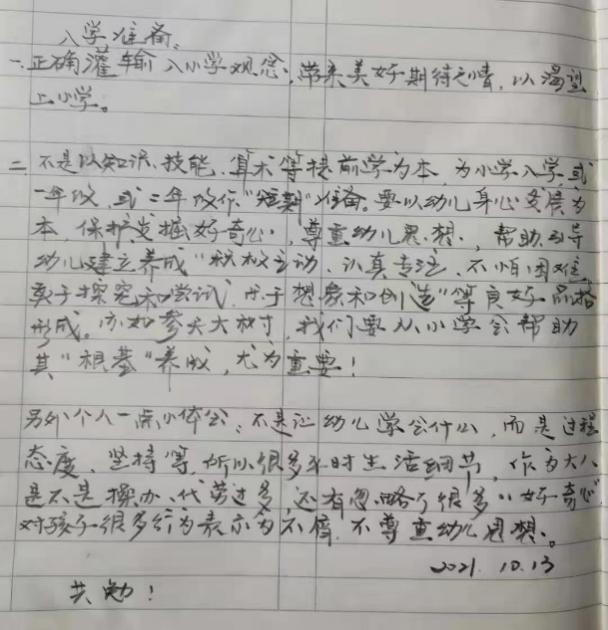 入学准备.
一. 正确灌输入小学观念, 带来美好期待之情, 以渴望
上小学。
二 不是以知识、技能、算术等提前学为本, 为小学入学, 或
一年级, 或二年级作“短期”准备. 要以幼儿身心发展为
本, 保护发掘好奇心, 尊重幼儿思想, 帮助引导
幼儿建立养成“积极主动、认真专注、不怕困难、
敢于探究和尝试, 乐于想象和创造”等良好品格
形成。亦如参天大树, 我们要从小学会帮助
其“根基”养成, 尤为重要!
另外个人一点小体会: 不是让幼儿学会什么, 而是过程
态度、坚持等, 所以很多平时生活细节, 作为大人
是不是操办、代劳过多, 还有忽略了很多“好奇心”
对孩子很多行为表示为不屑. 不尊重幼儿思想.。
2021. 10. 13
共勉!